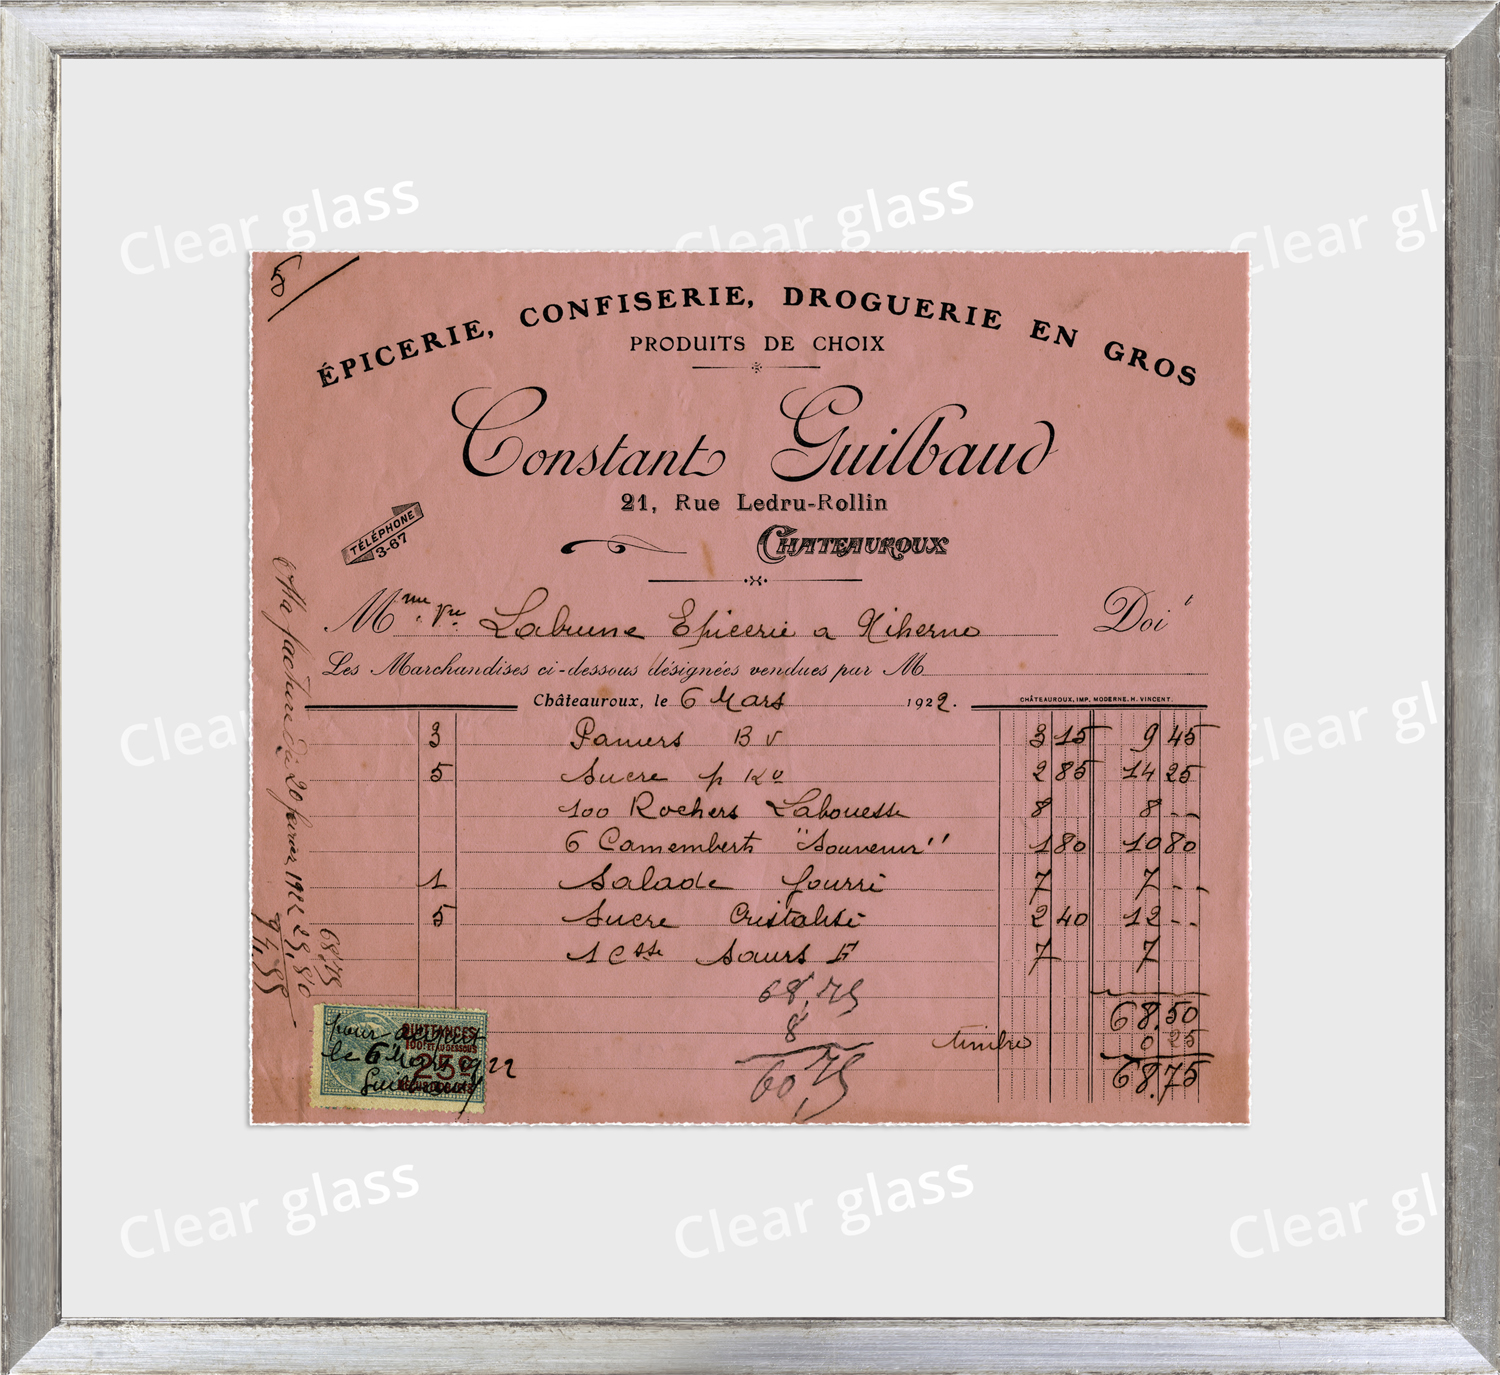 Clear glass Clear glass Clear gl
ÉPICERIE, CONFISERIE, DROGUERIE EN GROS
PRODUITS DE CHOIX
Constant Guilbaud
21, Rue Ledru-Rollin
TÉLÉPHONE
3-67
CHATEAUROUX
Mme Vve Labrune Epicerie a Niherne Doit
Les Marchandises ci-dessous désignées vendues par M
Châteauroux, le 6 Mars 1922.
CHÂTEAUROUX, IMP. MODERNE, H. VINCENT.
3 Paniers B V 3 15 9 45
5 Sucre p Ko 2 85 14 25
100 Rochers Labouesse 8 8 --
6 Camemberts "Souvenir" 1 80 10 80
1 Salade fourré 7 7 --
5 Sucre Cristalisé 2 40 12 --
1 Csse Saurs F 7 7
68,75
8
60,75
68,50
timbre 0 25
68,75
Ma facture du 20 février 1922 25,80
68,75
94,55
QUITTANCES
25c
pour acquit
le 6 Mars 1922
Guilbaud
Clear Clear gl
Clear glass Clear glass Clear gl